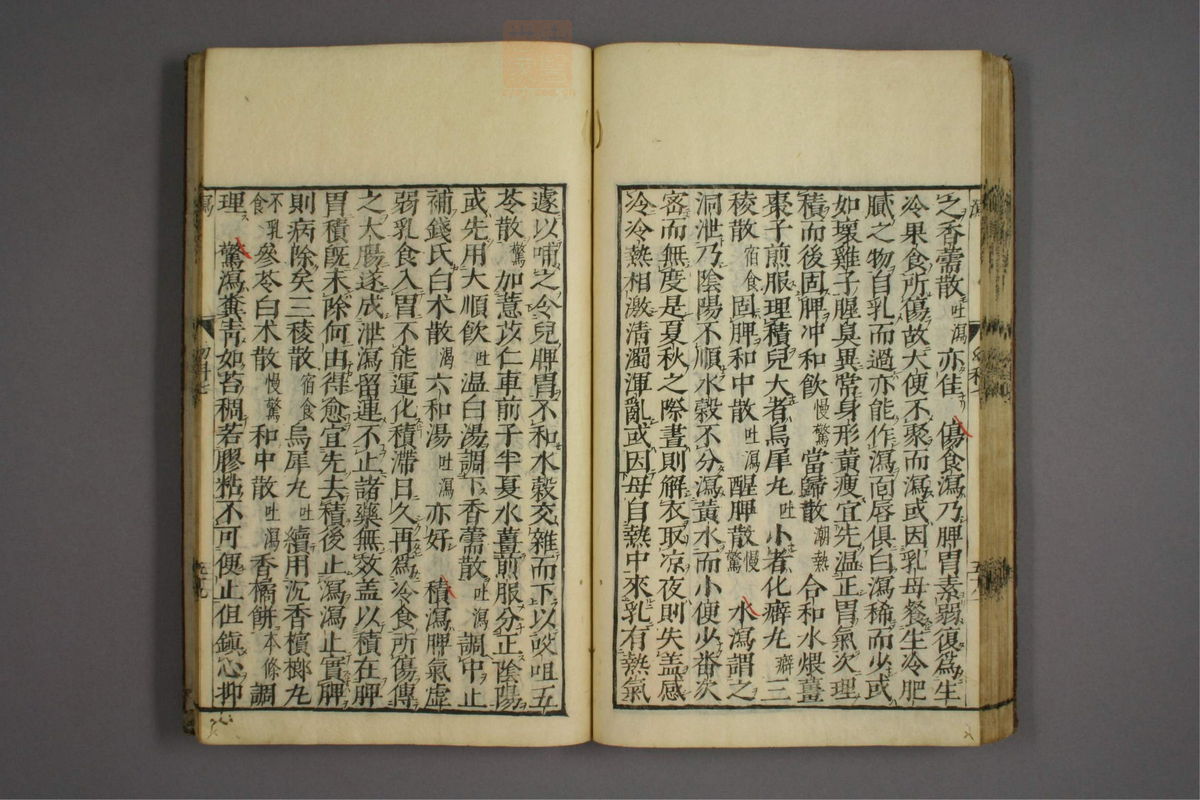 之香需散吐瀉亦佳 傷食瀉乃脾胃素弱復爲生
冷果食所傷故大便不聚而瀉或因乳母餐生冷肥
膩之物自乳而過亦能作瀉面唇俱白瀉稀而少或
如壞雞子腥臭異常身形黃瘦宜先温正胃氣次理
積而後固脾冲和飲慢驚當歸散潮熱合和水煨薑
棗子煎服理積兒大者烏犀丸吐小者化癖丸癖三
稜散宿食固脾和中散吐瀉醒脾散慢驚 水瀉謂之
洞泄乃陰陽不順水穀不分瀉黃水而小便少番次
密而無度是夏秋之際晝則解衣取凉夜則失盖感
冷冷熱相激清濁渾亂或因母自熱中來乳有熱氣
遽以哺之令兒脾胃不和水穀交雜而下以㕮咀五
苓散驚加薏苡仁車前子半夏水薑煎服分正陰陽
或先用大順飲吐温白湯調下香需散吐瀉調中止
補錢氏白术散渴六和湯吐瀉亦好 積瀉脾氣虛
弱乳食入胃不能運化積滯日久再爲冷食所傷傳
之大腸遂成泄瀉留連不止諸藥無效盖以積在脾
胃積旣未除何由得愈宜先去積後止瀉瀉止實脾
則病除矣三稜散宿食烏犀丸吐續用沉香檳榔丸
不乳食參苓白术散慢驚和中散吐瀉香橘餅本條調
理 驚瀉糞靑如苔稠若膠粘不可便止但鎭心抑